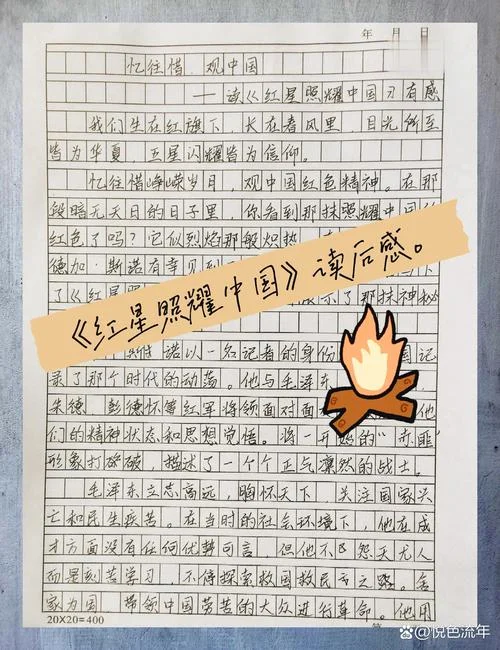 年 月 日
忆往惜,观中国
——读《红星照耀中国》有感
我们生在红旗下,长在春风里,目光所至
皆为华夏,五星闪耀皆为信仰。
忆往惜峥嵘岁月,观中国红色精神。在那
段暗无天日的日子里,你看到那抹照耀中
红色了吗?它似烈焰那般炽热
德加·斯诺有幸见到
了《红星照 示了那抹神秘
《红星照耀中国》读后感。
诺以一名记者的身份 国记
录了那个时代的动荡。他与毛泽东
朱德、彭德怀等红军将领面对面 他
们的精神状态和思想觉悟。将一开始的“赤匪”
形象打破,描述了一个个正气凛然的战士。
毛泽东立志高远,胸怀天下,关注国家兴
亡和民生疾苦。在当时的社会环境下,他在成
才方面没有任何优势可言,但他不怨天尤人
而是刻苦学习,不停探索救国救民之路。舍
家为国,带领中国劳苦的大众进行革命。他用
20X20=400
第
@悦色流年